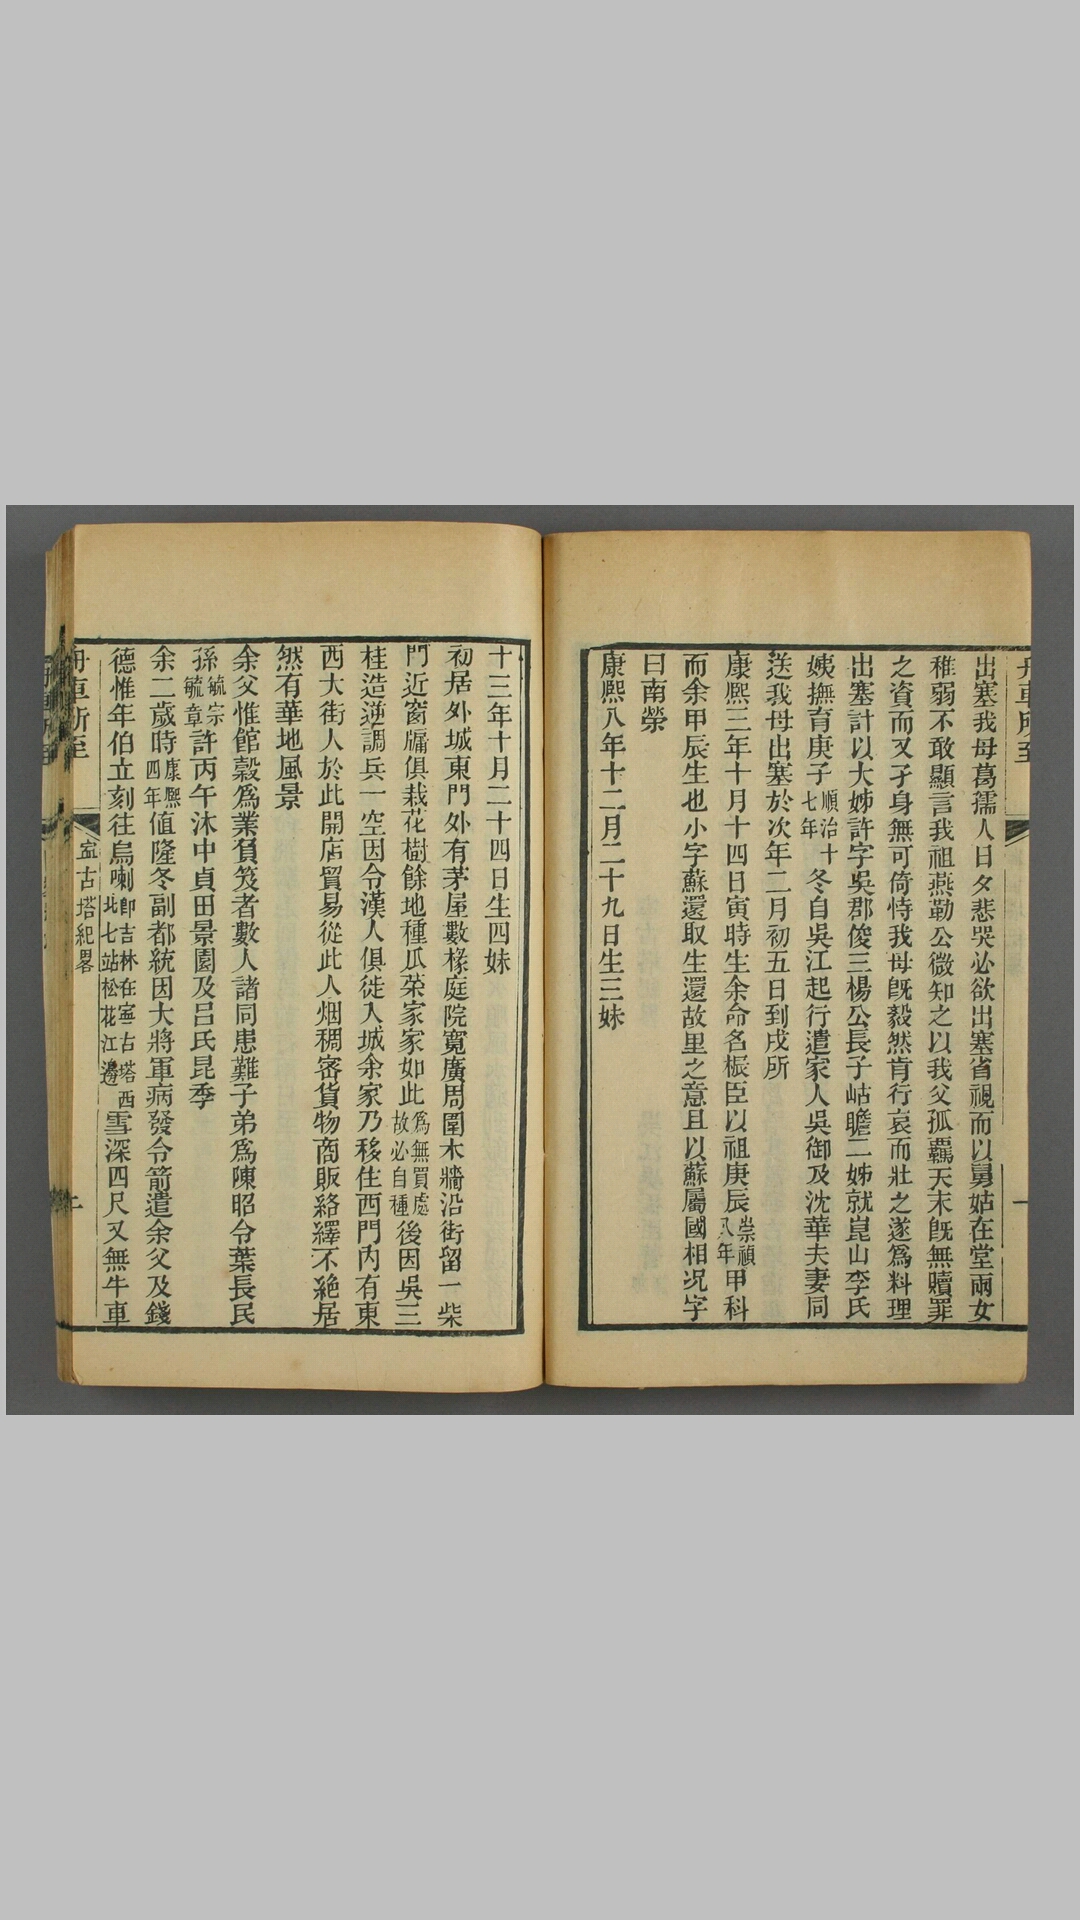 舟車所至
一
出塞我母葛孺人日夕悲哭必欲出塞省視而以舅姑在堂兩女
稚弱不敢顯言我祖燕勒公微知之以我父孤羈天末旣無贖罪
之資而又孑身無可倚恃我母旣毅然肯行哀而壯之遂爲料理
出塞計以大姊許字吳郡俊三楊公長子岵瞻二姊就崑山李氏
姨撫育庚子順治十七年冬自吳江起行遣家人吳御及沈華夫妻同
送我母出塞於次年二月初五日到戍所
康熙三年十月十四日寅時生余命名桭臣以祖庚辰崇禎八年甲科
而余甲辰生也小字蘇還取生還故里之意且以蘇屬國相况字
曰南榮
康熙八年十二月二十九日生三妹
十三年十月二十四日生四妹
初居外城東門外有茅屋數椽庭院寬廣周圍木牆沿街留一柴
門近窗牖俱栽花樹餘地種瓜菜家家如此爲無買處故必自種後因吳三
桂造逆調兵一空因令漢人俱徙入城余家乃移住西門內有東
西大街人於此開店貿易從此人烟稠密貨物商販絡繹不絶居
然有華地風景
余父惟館穀爲業負笈者數人諸同患難子弟爲陳昭令葉長民
孫毓宗毓章許丙午沐中貞田景園及呂氏昆季
余二歲時康熙四年値隆冬副都統因大將軍病發令箭遣余父及錢
德惟年伯立刻往烏喇卽吉林在寍古塔西北七站松花江邊雪深四尺又無牛車
舟車所至
寍古塔紀畧
二